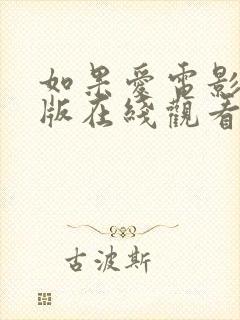 如果愛電影
版在綫觀看
古波斯